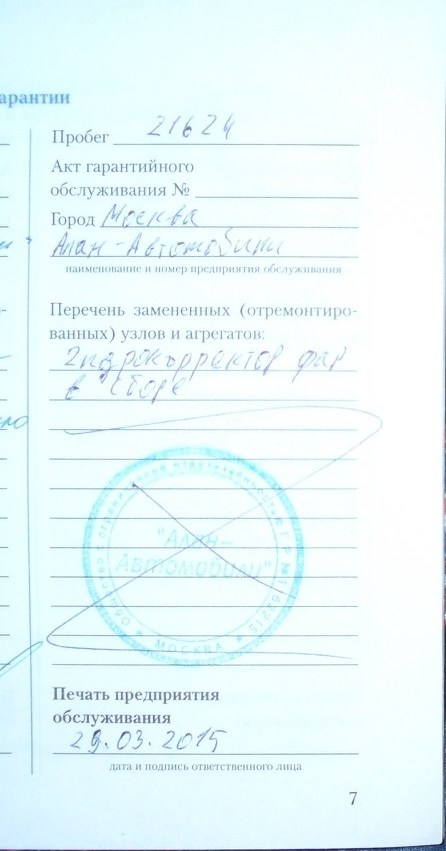 арантии
Пробег 21624
Акт гарантийного
обслуживания №
Город Москва
Алан-Автомобили
наименование и номер предприятия обслуживания
Перечень замененных (отремонтиро-
ванных) узлов и агрегатов:
гидрокорректор фар
в сборе
"Алан-
Автомобили"
МОСКВА
Печать предприятия
обслуживания
29.03.2015
дата и подпись ответственного лица
7